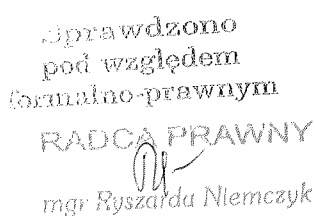 Sprawdzono
pod względem
formalno-prawnym
RADCA PRAWNY
mgr Ryszarda Niemczyk